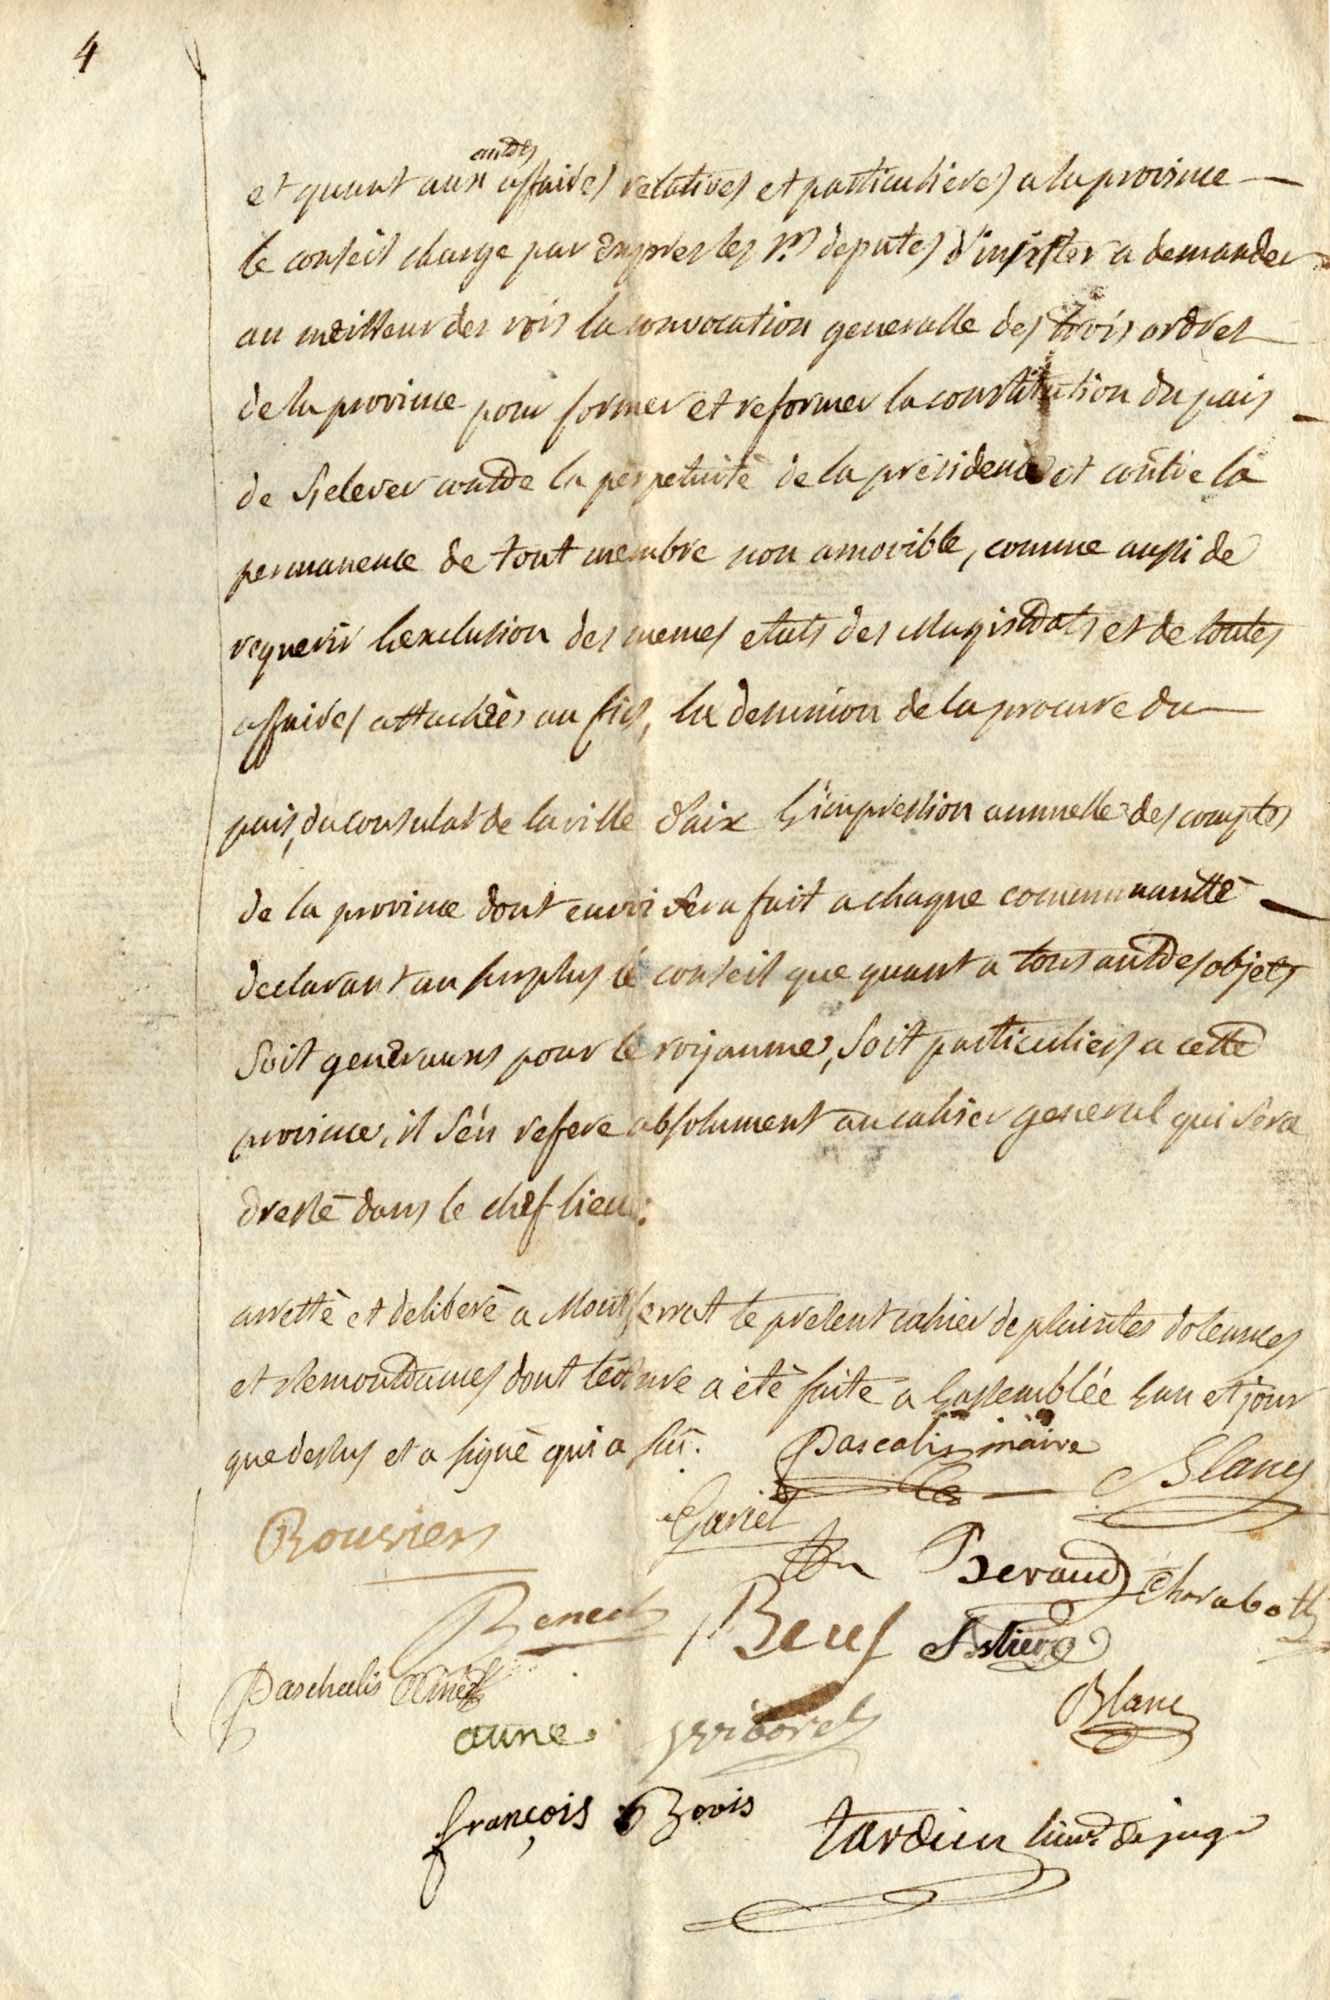 4
et quant aux autres affaires relatives et particulieres a la province
le conseil charge par exprès les srs deputes d'insister a demander
au meilleur des rois la convocation generalle des trois ordres
de la province pour former et reformer la constitution du pais
de s'elever contre la perpetuité de la présidence et contre la
permanence de tout membre non amovible, comme aussi de
requerir l'exclusion des memes etats des magistrats et de toutes
affaires attachées au fisc, la desunion de la procure du
pais, du consulat de la ville d'aix l'impression annuelle des comptes
de la province dont envoi sera fait a chaque communautté
declarant au surplus le conseil que quant a tous autres objets
soit generaux pour le royaume, soit particuliers a cette
province, il s'en refere absolument au cahier general qui sera
dressé dans le chef lieu:
arretté et deliberé a Montferrat le present cahier de plaintes doleances
et remontrances dont lecture a été faite a l'assemblée l'an et jour
que dessus et a signé qui a sçu.
Pascalis maire
Blanc
Rouvier
Gariel
Beraud
Charabot
Beuf
Astier
Paschalis
aune
Blanc
françois Bovis
tardieu lieut. de juge